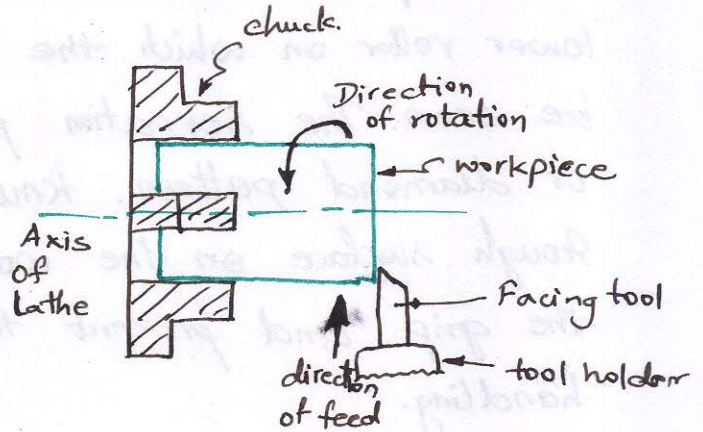 chuck.
Direction
of rotation
workpiece
Axis
of
Lathe
Facing tool
tool holder
direction
of feed